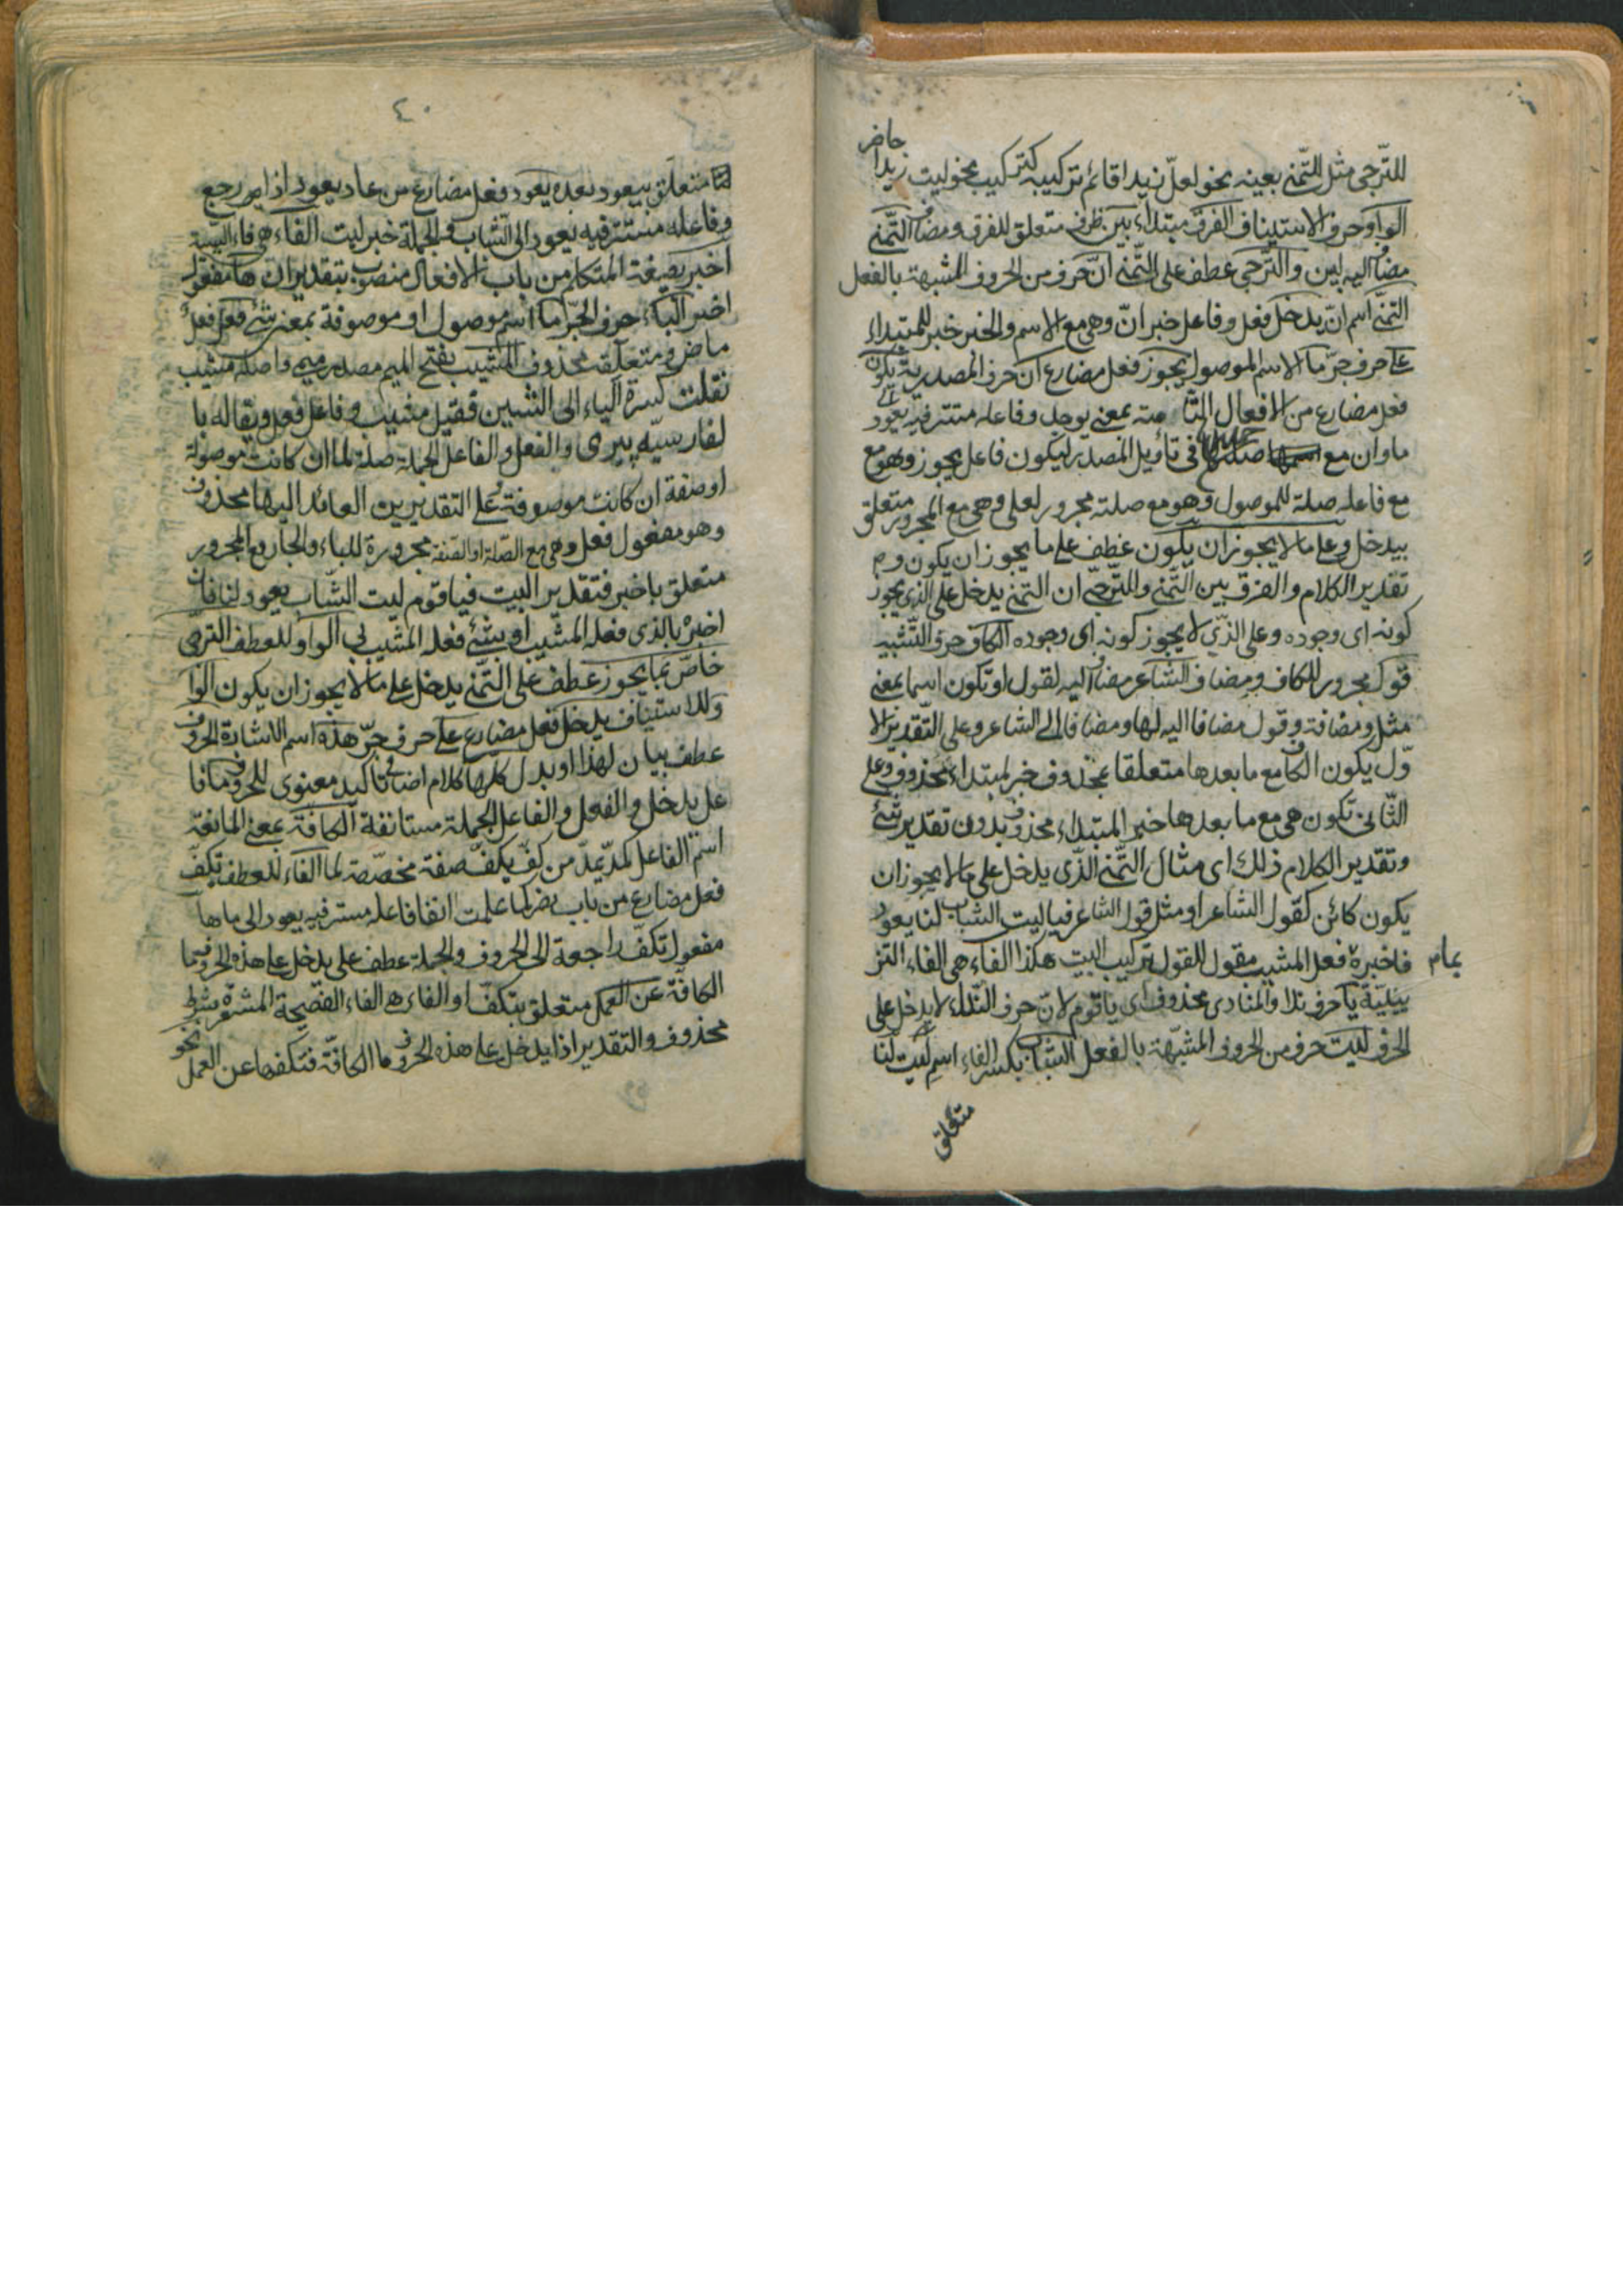 للتّرجى مثل التّمنى بعينه نحو لعلّ زيدا قائم تركيبه كتركيب نحو ليت زيدا حاضر
الواو حرف الاستيناف الفرق مبتداء بين ظرف متعلق للفرق ومضاف التّمنى
مضاف اليه لبين والتّرجى عطف على التّمنى انّ حرف من الحروف المشبهة بالفعل
التمنّى اسم انّ يدخل فعل وفاعل خبر انّ وهى مع الاسم والخبر خبر للمبتداء
على حرف جرّ ما الاسم الموصول يجوز فعل مضارع ان حرف المصدرية يكون
فعل مضارع من الافعال التّامة بمعنى يوجد وفاعله مستتر فيه يعود الى
ما وان مع صلتها فى تأويل المصدر ليكون فاعل يجوز وهو مع
مع فاعله صلة للموصول وهو مع صلته مجرور لعلى وهى مع المجرور متعلق
بيدخل وعلى ما لا يجوز ان يكون عطف على ما يجوز ان يكون و
تقدير الكلام والفرق بين التّمنى والتّرجىّ ان التمنى يدخل على الذى يجوز
كونه اى وجوده وعلى الذّى لا يجوز كونه اى وجوده الكاف حرف التّشبيه
قول مجرور للكاف ومضاف الشاعر مضاف اليه لقول او تكون اسما بمعنى
مثل ومضافة وقول مضافا اليه لها ومضافا الى الشاعر وعلى التّقدير الا
وّل يكون الكاف مع ما بعدها متعلقا بمحذوف خبر لمبتداء محذوف وعلى
الثّانى تكون هى مع ما بعدها خبر المبتداء محذوف بدون تقدير شئ
وتقدير الكلام ذلك اى مثال التّمنى الذّى يدخل على ما لا يجوز ان
يكون كائن كقول الشاعر او مثل قول الشاعر فيا ليت الشباب لنا يعود
فاخبره فعل المشيب مقول للقول تركيب البيت هكذا الفاء هى الفاء التز
يينيّة يا حرف ندا والمنادى محذوف اى يا قوم لانّ حرف النّداء لا يدخل على
الحرف ليت حرف من الحروف المشبّهة بالفعل الشباب بكسر الفاء اسم ليت لنا
متعلق
٤٠
لنا متعلّق بيعود بعده يعود فعل مضارع من عاد يعود اذا رجع
وفاعله مستتر فيه يعود الى الشّباب والجملة خبر ليت الفاء هى فاء السّببية
اخبر بصيغة المتكلم من باب الافعال منصوب بتقدير ان ها مفعول
اخبر الباء حرف الجرّ ما اسم موصول او موصوفة بمعنى شئ فعل فعل
ماض ومتعلّقه محذوف المشيب بفتح الميم مصدر ميمى واصله مشيب
نقلت كسرة الياء الى الشين فقيل مشيب وفاعل فعل ويقال له با
لفارسيّه پيرى والفعل والفاعل الجملة صلة لما ان كانت موصولة
او صفة ان كانت موصوفة وعلى التقديرين العائد اليها محذوف
وهو مفعول فعل وهى مع الصّلة او الصّفة مجرورة للباء والجار مع المجرور
متعلق باخبر فتقدير البيت فيا قوم ليت الشّاب يعود لنا فان
اخبره بالذى فعله المشيب او بشئ فعله المشيب بى الواو للعطف الترجى
خاصّ بما يجوز عطف على التّمنى يدخل على ما لا يجوز ان يكون الواو
وللاستيناف يدخل فعل مضارع على حرف جرّ هذه اسم الاشارة الحروف
عطف بيان لهذا او بدل كلها كلام اضافى تاكيد معنوى للحروف ما فا
عل يدخل والفعل والفاعل الجملة مستانفة الكافة بمعنى المانعة
اسم الفاعل كمدّ يمدّ من كفّ يكفّ صفة مخصّصة لما الفاء للعطف تكفّ
فعل مضارع من باب نصر كما علمت انفا فاعله مستتر فيه يعود الى ما ها
مفعول تكفّ راجعة الى الحروف والجملة عطف على يدخل على هذه الحروف ما
الكافّة عن العمل متعلق بتكفّ او الفاء هى الفاء الفصيحة المشعرة بشرط
محذوف والتقدير اذا يدخل على هذه الحروف ما الكافّة فتكفها عن العمل نحو